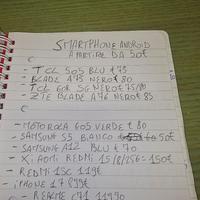 SMARTPHONE ANDROID
A PARTIRE DA 50€
- TCL 505 BLU € 75
- BLADE A75 NERO € 80
- TCL 60R 5G NERO € 75/80
- ZTE BLADE A76 NERO € 85
- MOTOROLA G05 VERDE € 80
- SAMSUNG S5 BIANCO 50€
- SAMSUNG A12 BLU € 70
- XIAOMI REDMI 15/8/256-150€
- REDMI 15C 119€
- IPHONE 17 899€
- REALME C71